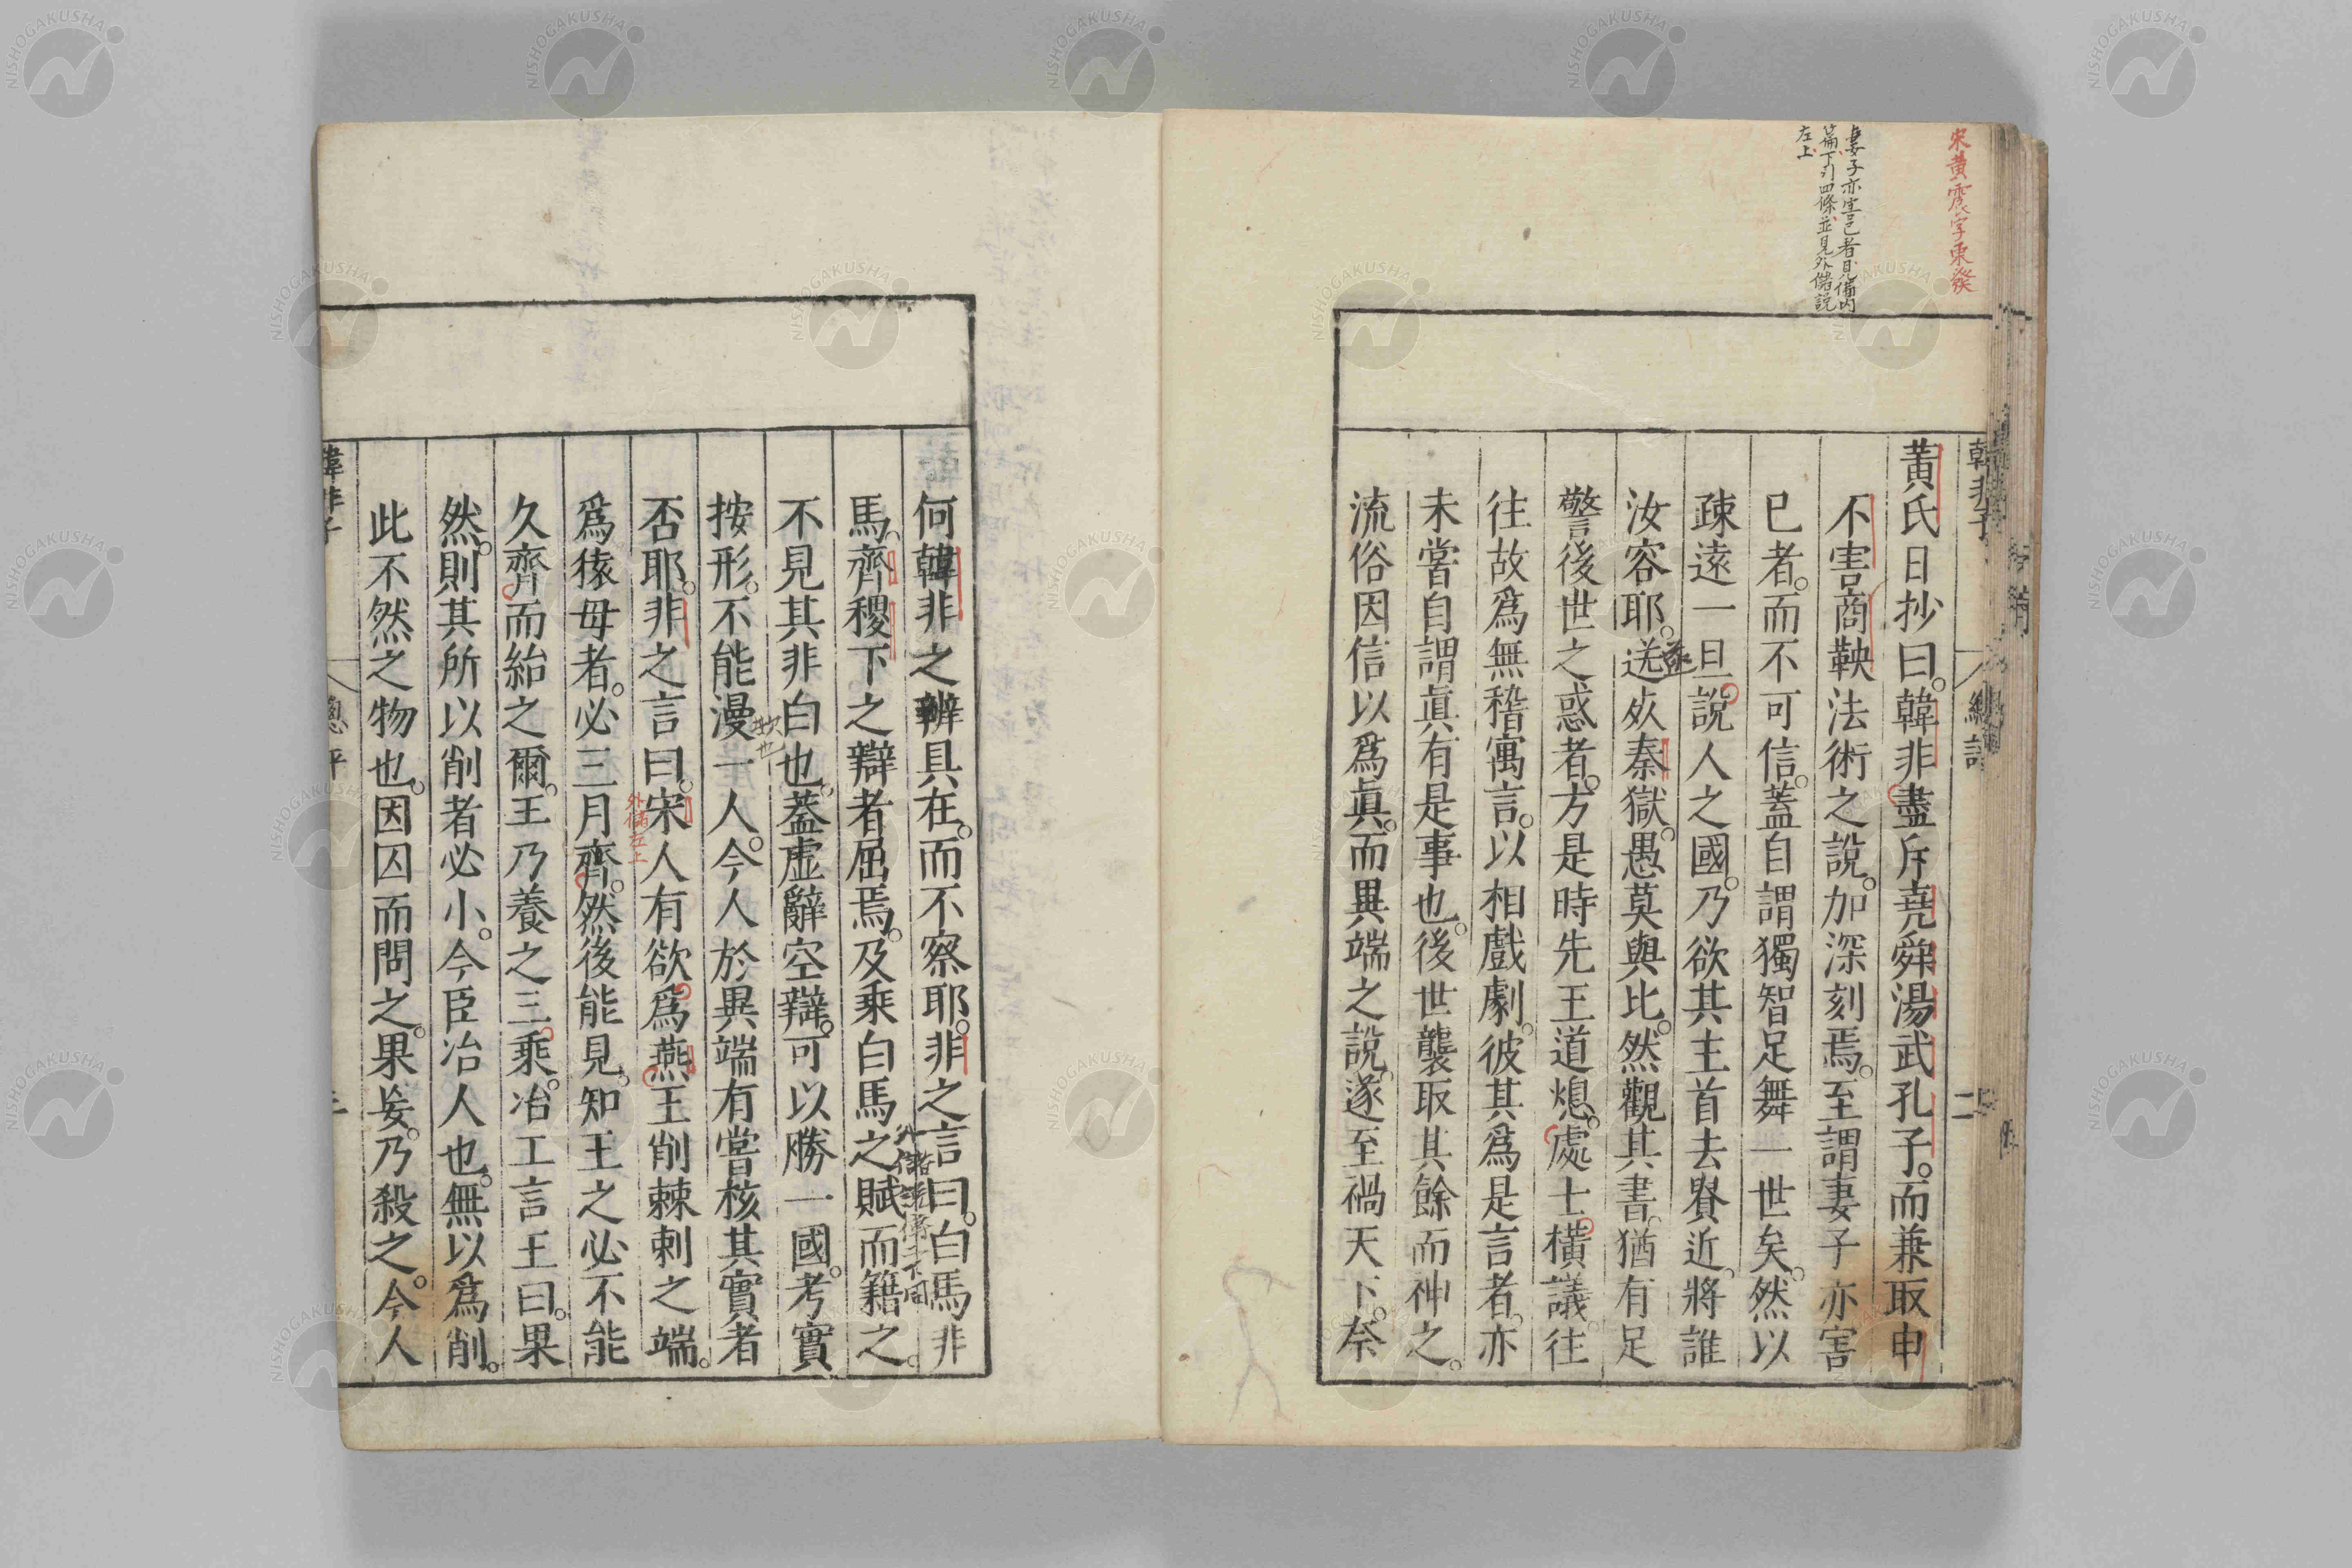 宋黄震字東發
妻子亦害己者見備内
篇下刃四條並見外儲説
左上
韓非子
總評
二
黄氏日抄曰。韓非盡斥堯舜湯武孔子。而兼取申
不害商鞅法術之說。加深刻焉。至謂妻子亦害
已者。而不可信。蓋自謂獨智足舞一世矣。然以
疎遠一旦說人之國。乃欲其主首去貴近。將誰
汝容耶。送死秦獄。愚莫與比。然觀其書。猶有足
警後世之惑者。方是時先王道熄。處士橫議。往
往故爲無稽寓言。以相戲劇。彼其爲是言者。亦
未嘗自謂眞有是事也。後世襲取其餘而神之。
流俗因信以爲眞。而異端之說。遂至禍天下。奈
何韓非之辨具在。而不察耶。非之言曰。白馬非
馬。齊稷下之辯者屈焉。及乘白馬之賦而籍之。
不見其非白也。蓋虚辭空辯。可以勝一國。考實
按形。不能漫一人。今人於異端有嘗核其實者
否耶。非之言曰。宋人有欲爲燕王削棘刺之端。
外儲左上
爲猿母者。必三月齊。然後能見。知王之必不能
久齊而紿之爾。王乃養之三乘。冶工言王曰。果
然。則其所以削者必小。今臣冶人也。無以爲削。
此不然之物也。因囚而問之。果妄。乃殺之。今人
韓非子
總評
三